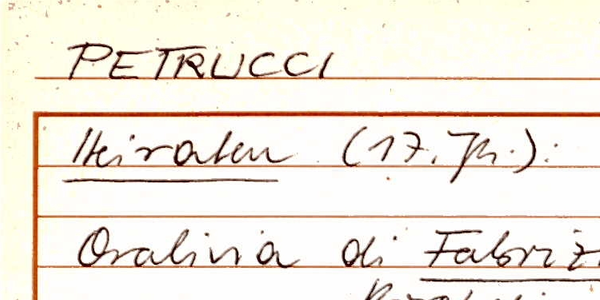 PETRUCCI
Heiraten (17. Jh.):
Oralivia di Fabriz